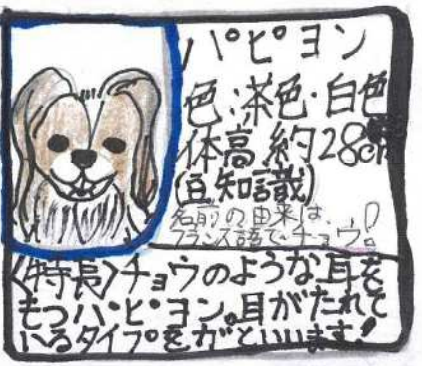 パピヨン
色:茶色・白色
体高約28cm
(豆知識)
名前の由来は、
フランス語で・チョウ!
〈特長〉チョウのような耳を
もつパピヨン。耳がたれて
いるタイプをガといいます!